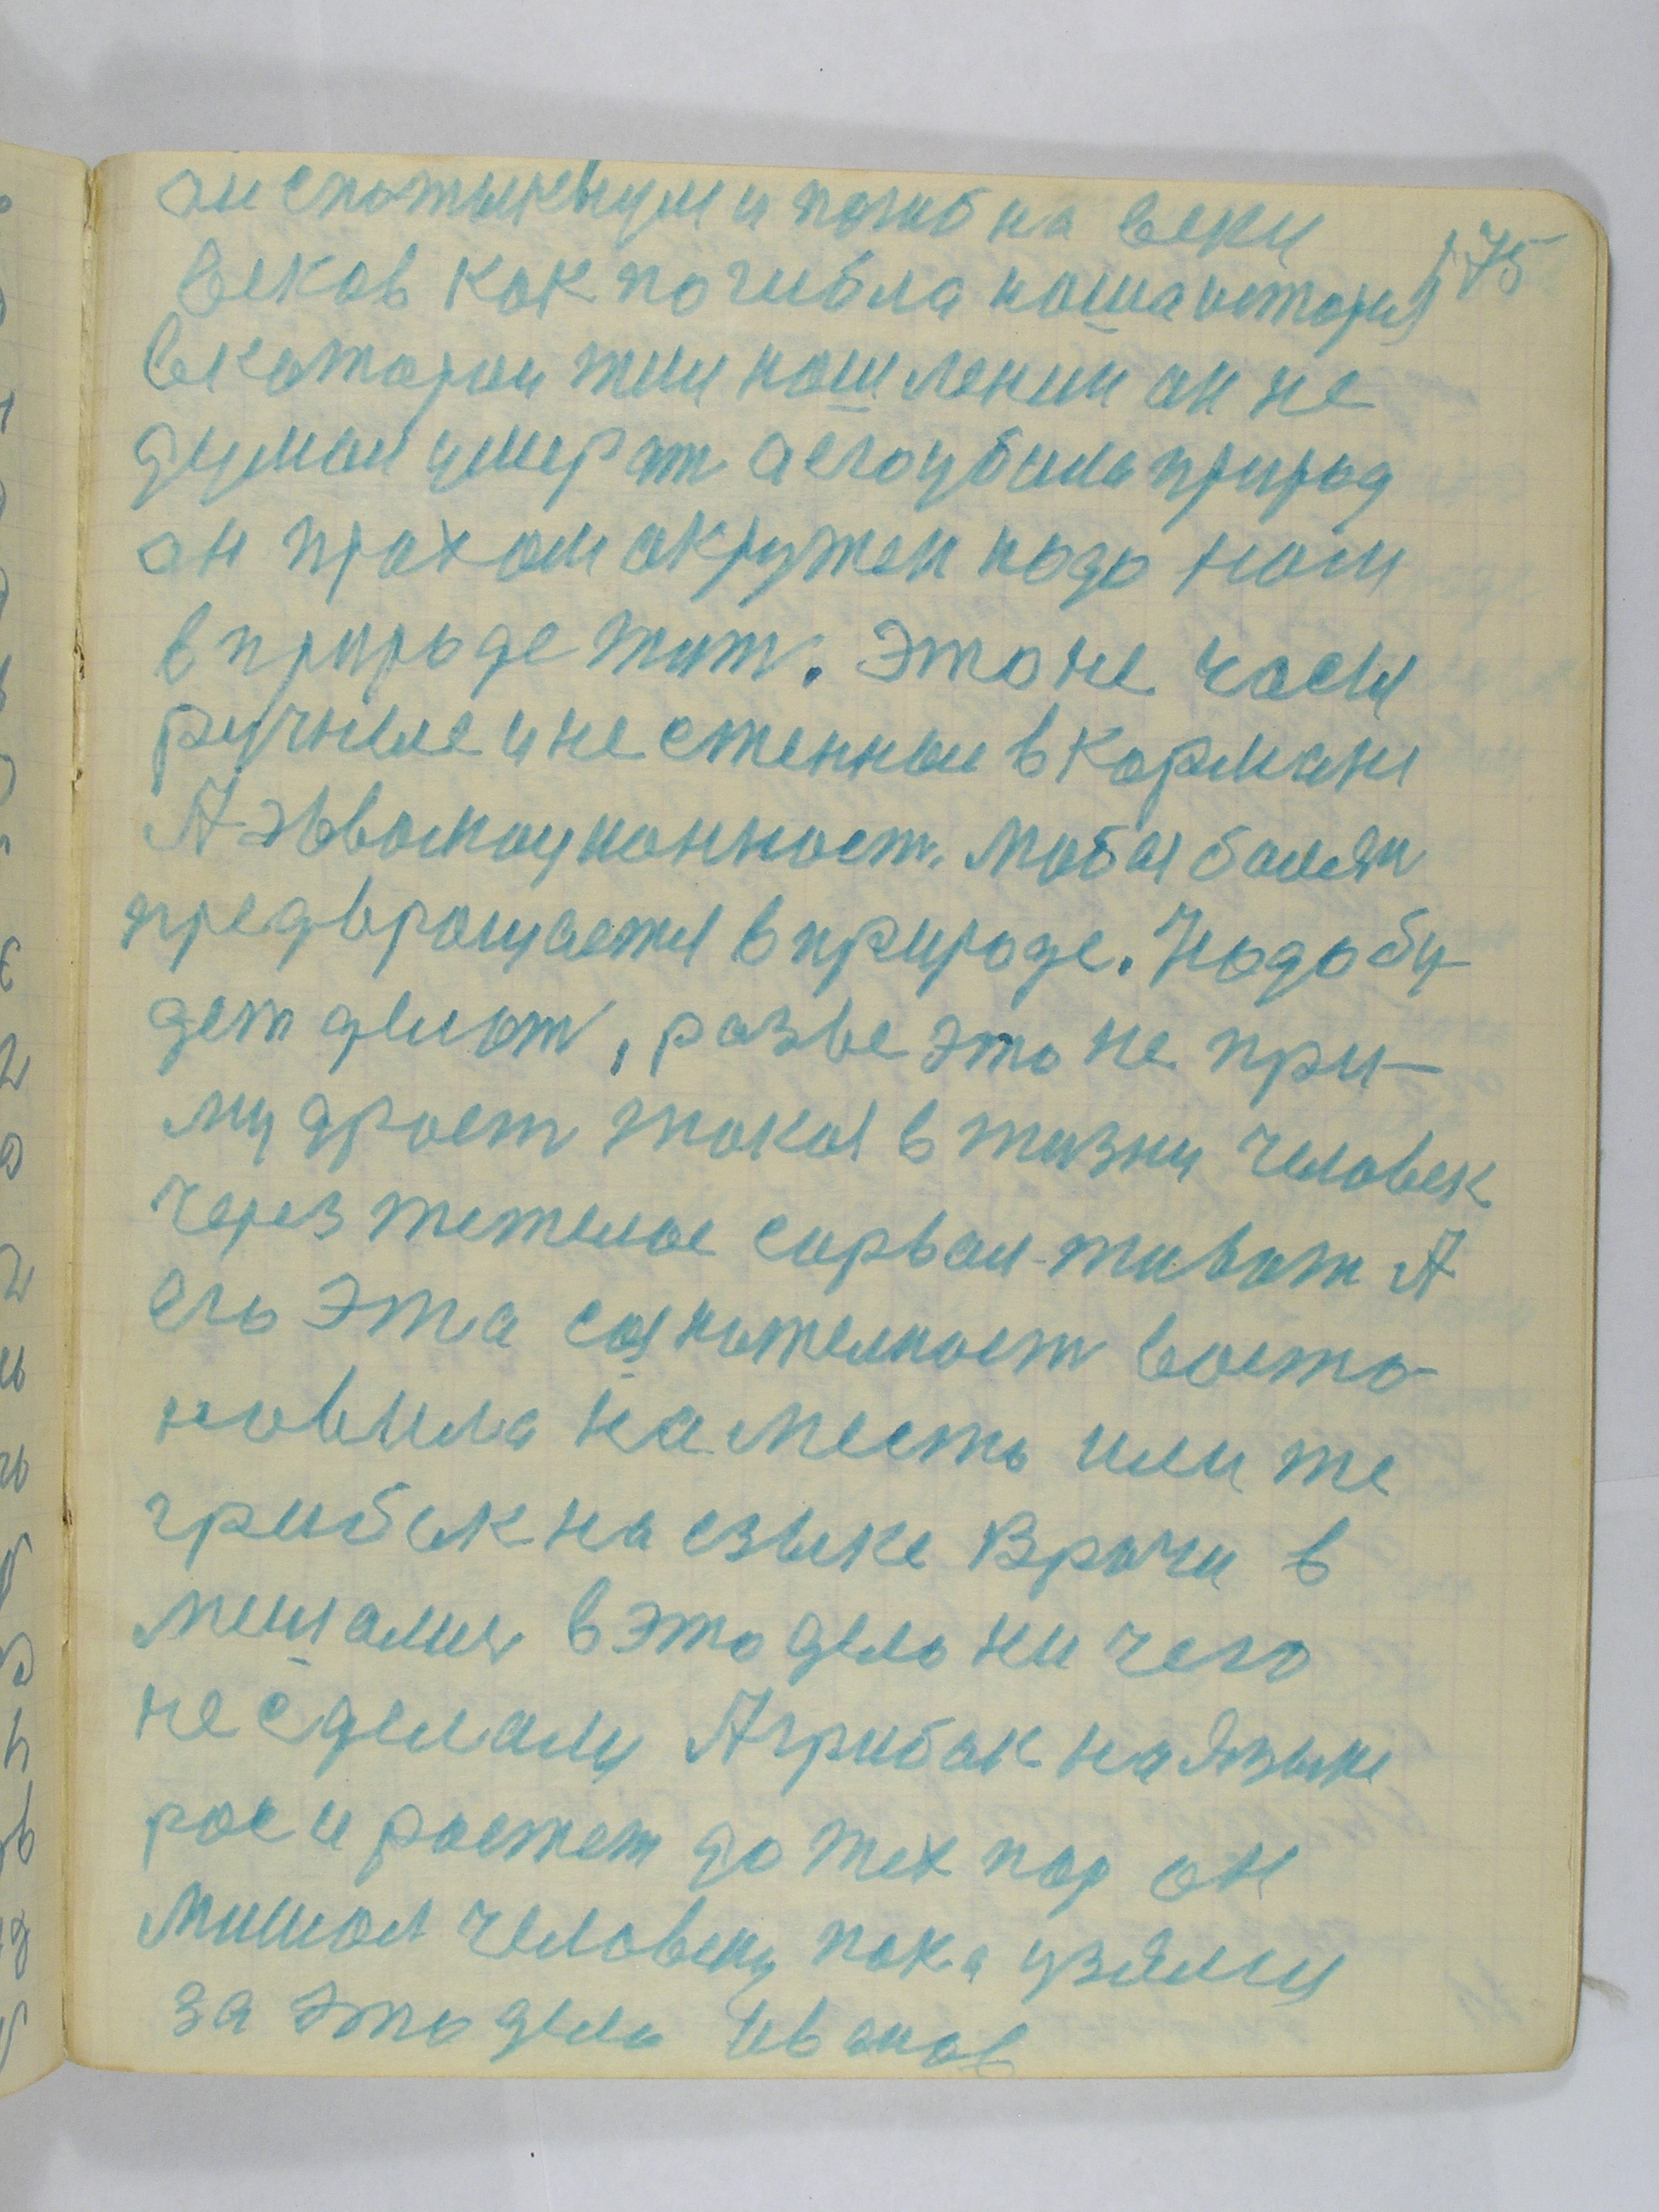 он спотыкнул и погиб на веки
175
веков как погибла наша история
в которои жил наш ленин он не
думал умират а его убила природ
он прахом окружен надо нам
в природе жит. Это не часы
ручные и не стенные в кормане
А эволюционност. Любая болезн
предврощается в природе. Надо бу-
дет делат, разве это не при-
мудрост такая в жизни человек
через тежелое сорвал живот А
его эта сознателност восто-
новила на место или же
грибок на езыке врачи в
мешалис в это дело ни чего
не сделали А грибок на языке
рос и растет до тех пор он
мишал человеку пока узялся
за это дело Иванов